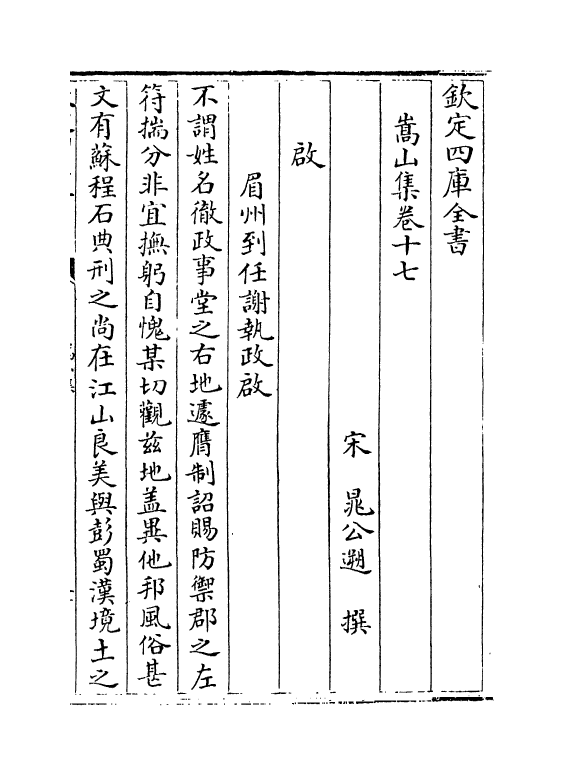 欽定四庫全書
嵩山集卷十七
宋　晁公遡　撰
啟
眉州到任謝執政啟
不謂姓名徹政事堂之右地遽膺制詔賜防禦郡之左
符揣分非宜撫躬自愧某切觀茲地盖異他邦風俗甚
文有蘇程石典刑之尚在江山良美與彭蜀漢境土之